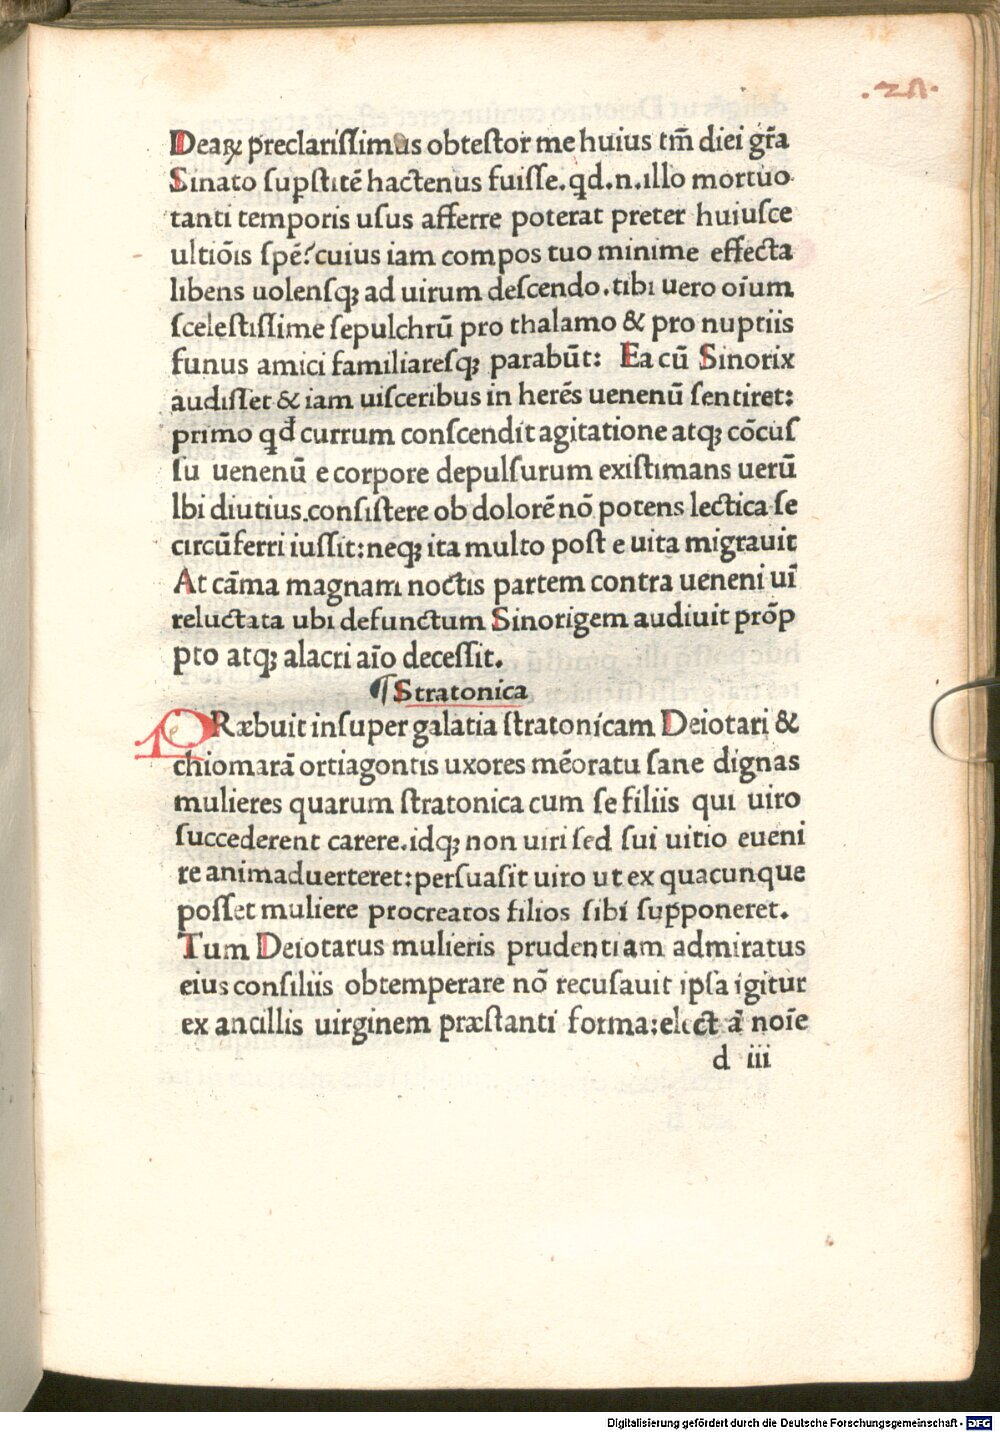 .27.
Deaꝝ p̄clariſſimas obteſtor me huius tm̄ diei gr̄a
Sinato ſupſtitē hactenus fuiſſe.qd.n.illo mortuo
tanti temporis uſus afferre poterat preter huiuſce
ultiōis ſpē?cuius iam compos tuo minime effecta
libens uolenſqꝫ ad uirum deſcendo.tibi uero oīum
ſceleſtiſſime ſepulchrū pro thalamo & pro nuptiis
funus amici familiareſqꝫ parabūt: Ea cū Sinorix
audiſſet & iam uiſceribus in herēs uenenū ſentiret:
primo qđ currum conſcendit agitatione atqꝫ cōcuſ
ſu uenenū e corpore depulſurum exiſtimans uerū
Ibi diutius.conſiſtere ob dolorē nō potens lectica ſe
circūferri iuſſit:neqꝫ ita multo poſt e uita migrauit
At cāma magnam noctis partem contra ueneni uī
reluctata ubi defunctum Sinorigem audiuit prōp
pto atqꝫ alacri aīo deceſſit.
¶Stratonica
PRæbuit inſuper galatia ſtratonicam Deiotari &
chiomarā ortiagontis uxores mēoratu ſane dignas
mulieres quarum ſtratonica cum ſe filiis qui uiro
ſuccederent carere.idqꝫ non uiri ſed ſui uitio eueni
re animaduerteret:perſuaſit uiro ut ex quacunque
poſſet muliere procreatos filios ſibi ſupponeret.
Tum Deiotarus mulieris prudentiam admiratus
eius conſiliis obtemperare nō recuſauit ipſa igitur
ex ancillis uirginem præſtanti forma:elect ā noīe
d iii
Digitalisierung gefördert durch die Deutsche Forschungsgemeinschaft - DFG